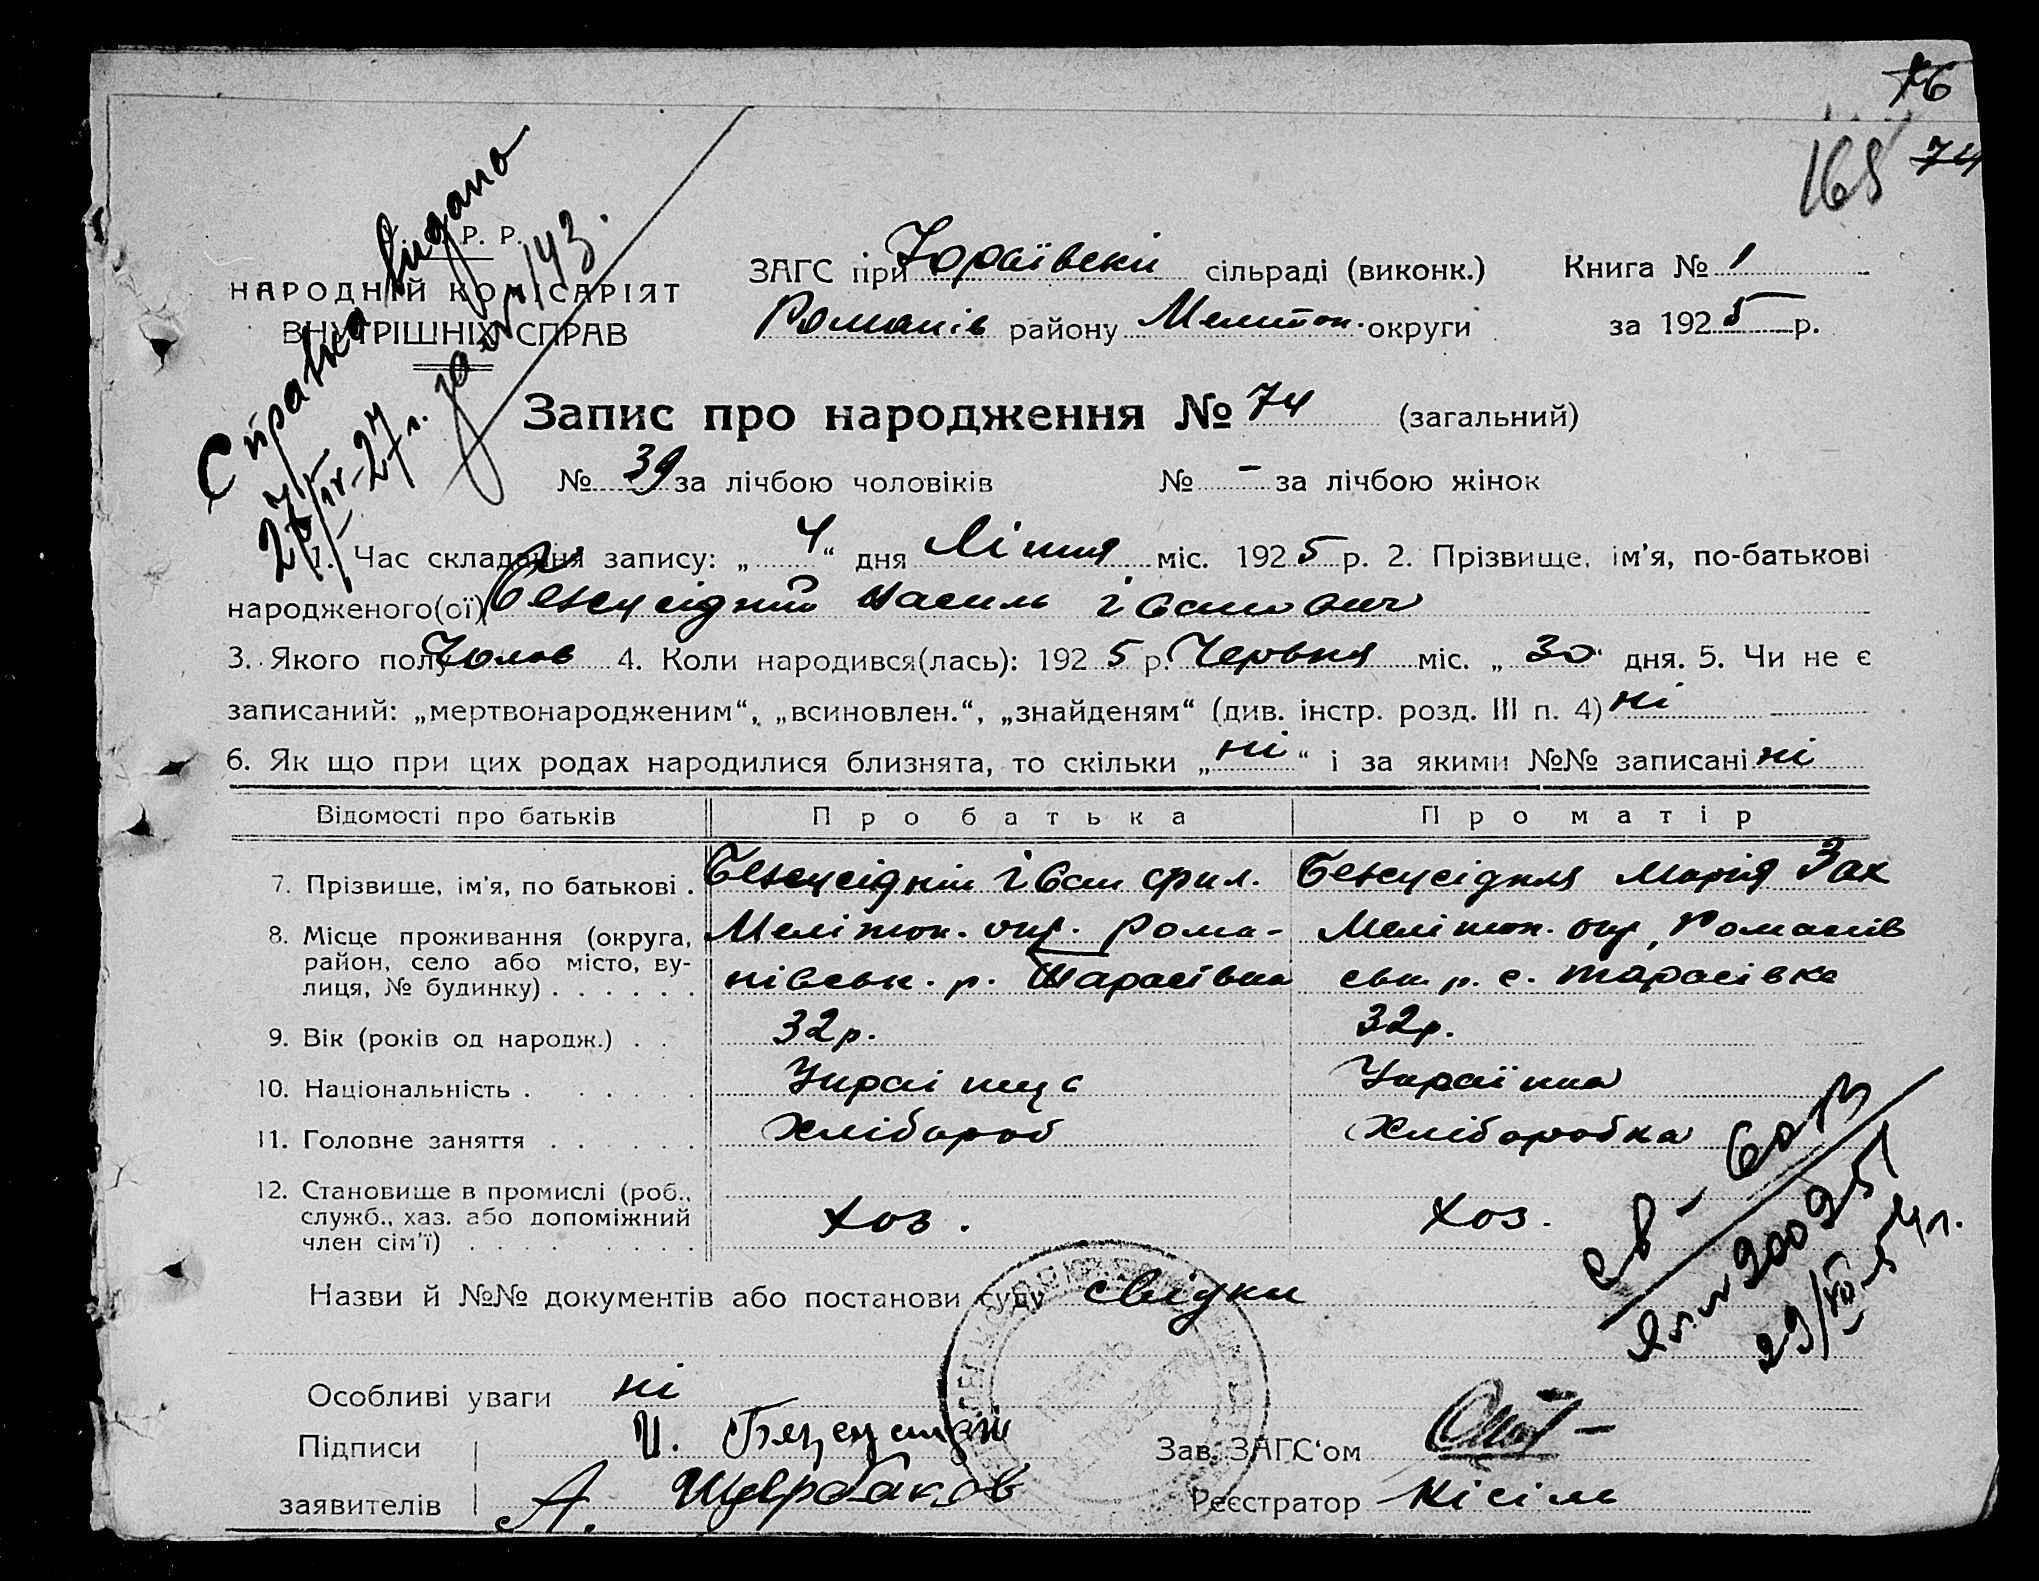 76
165 74
Р. Р.
НАРОДНІЙ КОМІСАРІЯТ
ВНУТРІШНІХ СПРАВ
Справка видана
27/IV-27 г. за № 143.
ЗАГС при Юраївскй сільраді (виконк.) Книга № 1
Романів району Мелитоп. округи за 1925 р.
Запис про народження № 74 (загальний)
№ 39 за лічбою чоловіків № - за лічбою жінок
1. Час складання запису: „ 4 “ дня Липня міс. 1925 р. 2. Прізвище, ім'я, по-батькові
народженого(ої) Василь Іванович
3. Якого полу Чолов 4. Коли народився(лась): 1925 р. Червня міс. „ 30 “ дня. 5. Чи не є
записаний: „мертвонародженим“, „всиновлен.“, „знайденям“ (див. інстр. розд. III п. 4) ні
6. Як що при цих родах народилися близнята, то скільки „ ні “ і за якими №№ записані ні
Відомості про батьків Про батька Про матір
7. Прізвище, ім'я, по батькові . Іван Фил. Марія Зах
8. Місце проживання (округа, Мелітоп. окр. Рома- Мелітоп. окр, Романів
район, село або місто, ву- нівськ. р. Тарасівка ськ р. с. Тарасівка
лиця, № будинку) . . . . . .
9. Вік (років од народж.) . . 32 р. 32 р.
10. Національність . . . . . . Українць Українка
11. Головне заняття . . . . . . Хлібороб Хліборобка
12. Становище в промислі (роб.,
служб., хаз. або допоміжний хоз. хоз.
член сім'ї) . . . . . . .
29/VII-54 г.
Назви й №№ документів або постанови суду свідки
Особливі уваги ні
Підписи И.
заявителів А. Щербаков
Зав. ЗАГС'ом
Реєстратор Кісіль